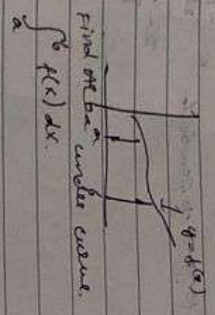 y=f(x)
a b
Find Area under curve.
∫ₐᵇ f(x) dx.